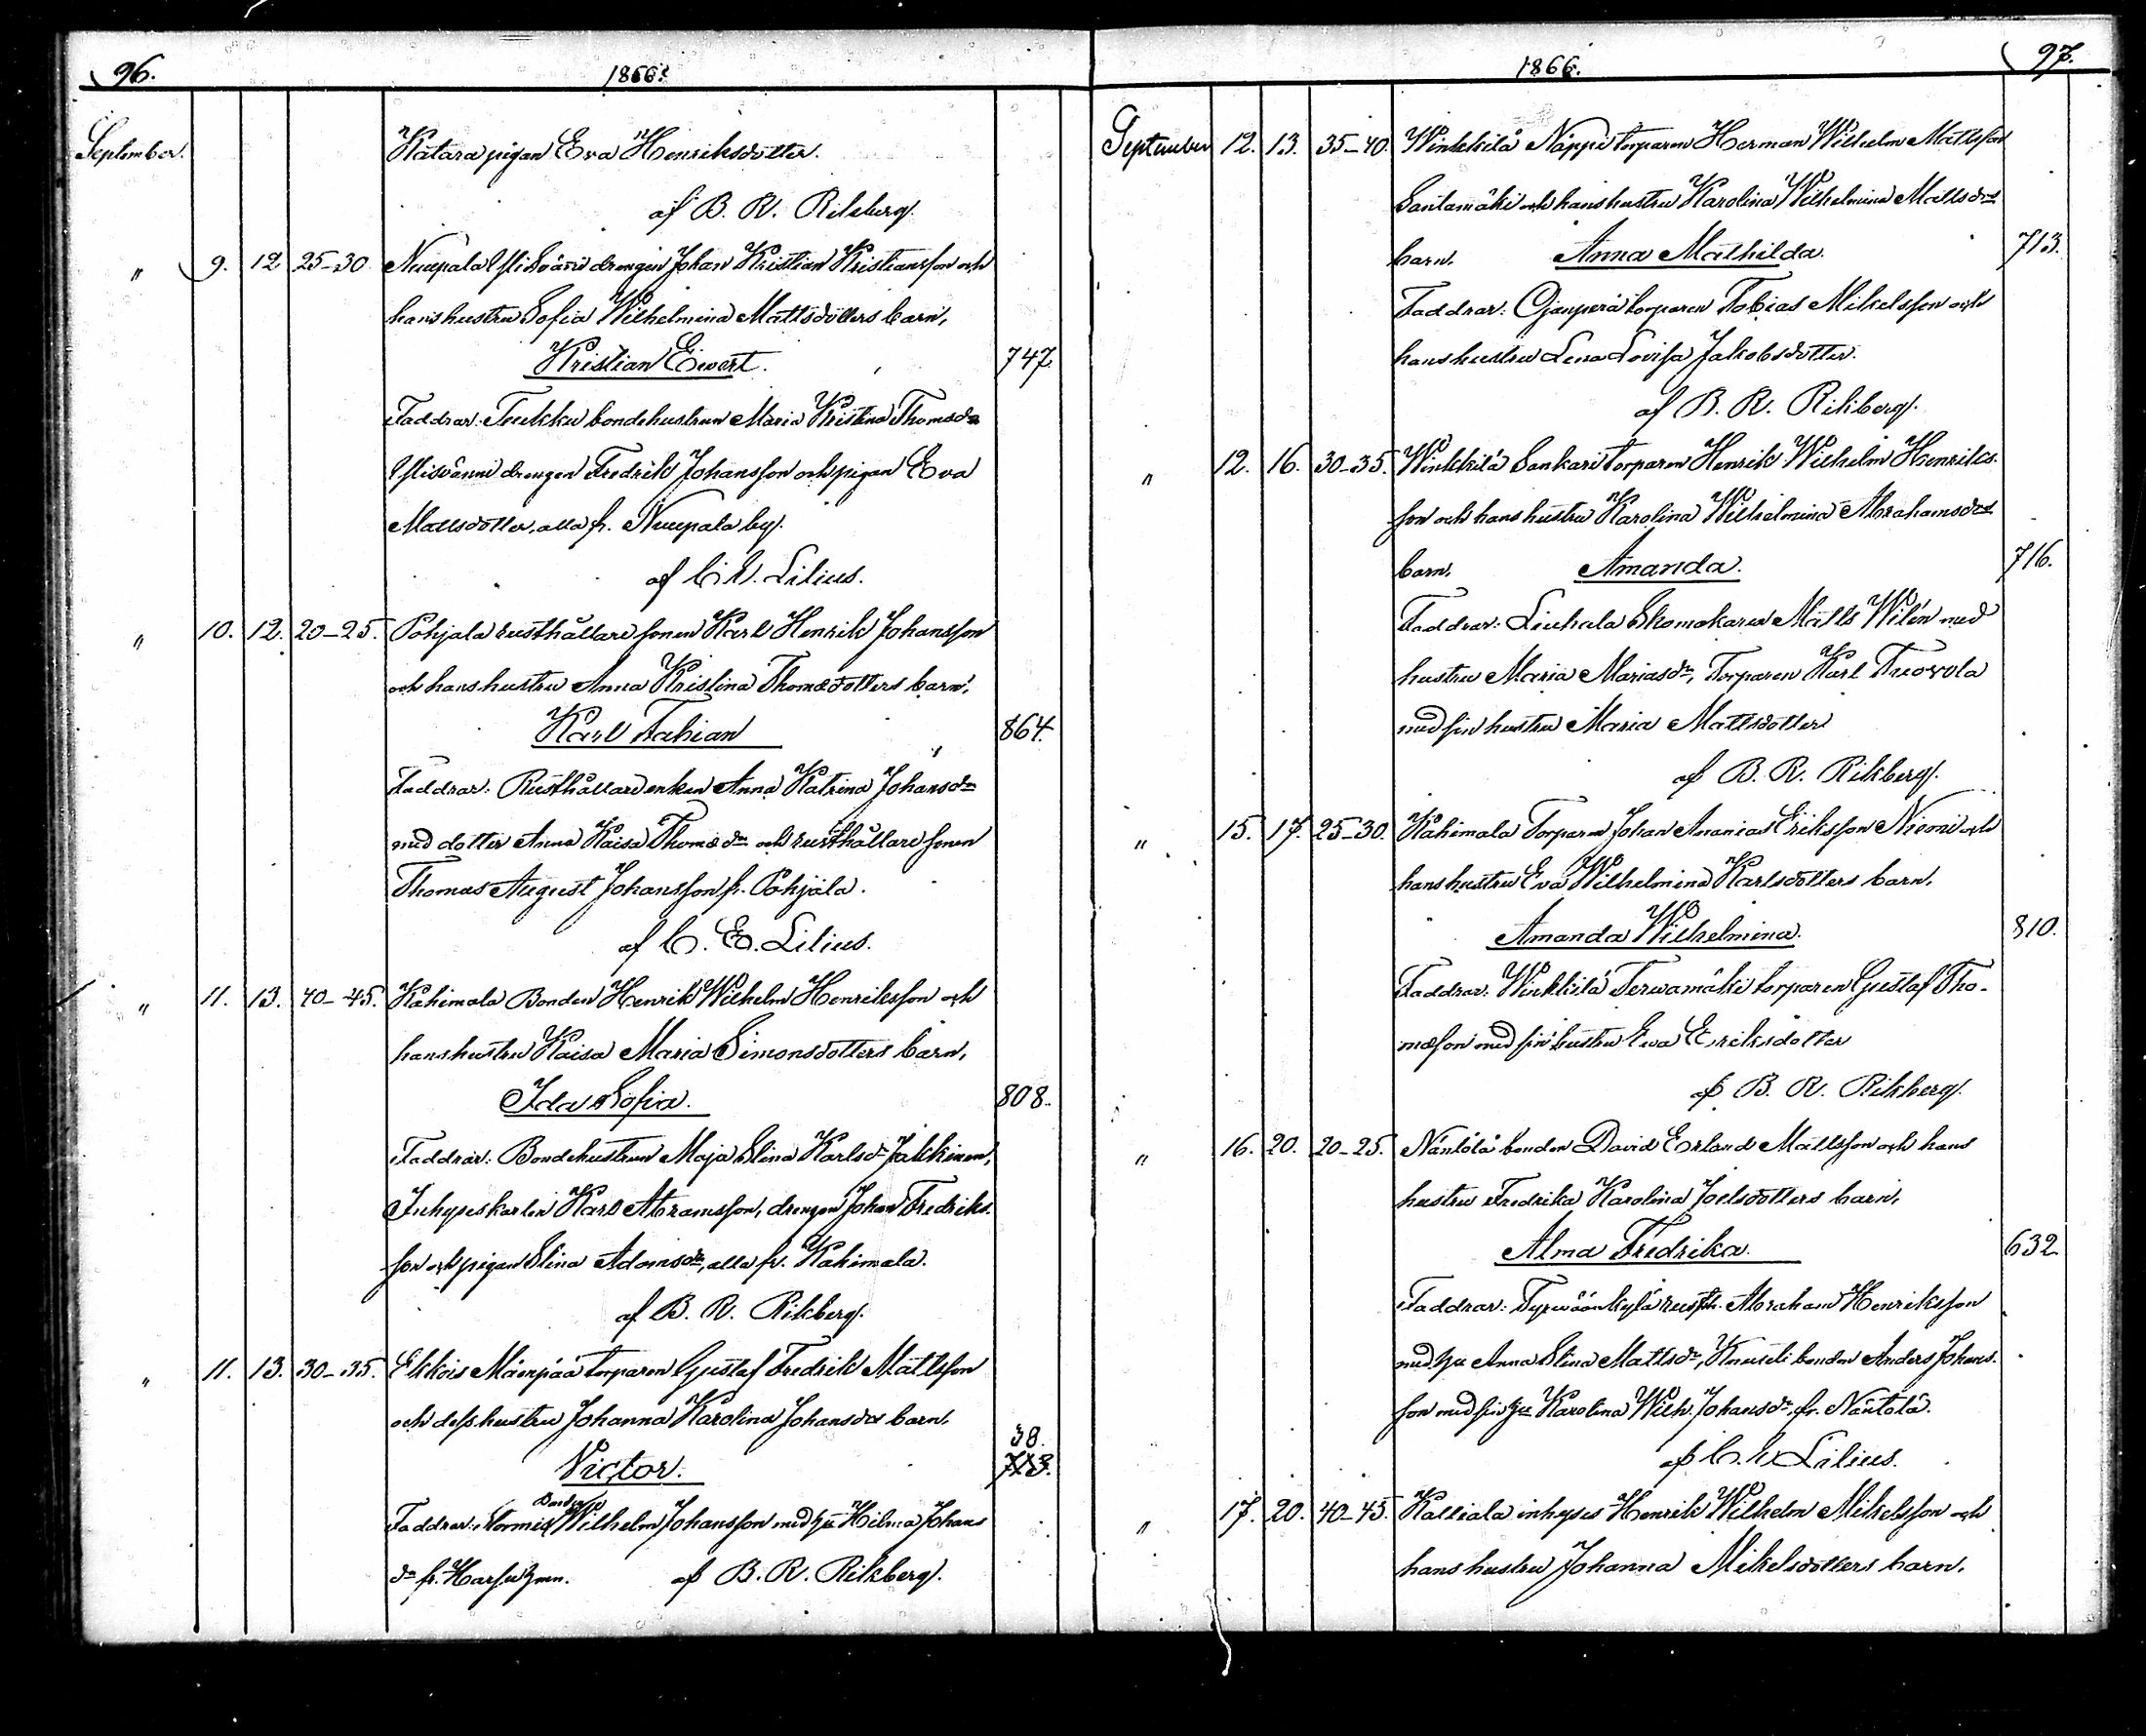 96.
1866.
September.
Kätara pigan Eva Henriksdotter.
af B. R. Rikberg.
" 9. 12 25-30. Nuupala Ylisvänni drengen Johan Kristian Kristiansson och
hans hustru Sofia Wilhelmina Mattsdotters barn,
Kristian Evert. 747.
Faddrar: Tuukku bondehustrun Maria Kristina Thomasdr
Ylisvänni drengen Fredrik Johansson och pigan Eva
Mattsdotter, alla fr. Nuupala by.
af C. E. Lilius.
" 10. 12. 20-25. Pohjala rusthållare sonen Karl Henrik Johansson
och hans hustru Anna Kristina Thomasdotters barn,
Karl Fabian 864.
Faddrar: Rusthållare enkan Anna Katrina Johansdr
med dotter Anna Kaisa Thomædr och rusthållare sonen
Thomas August Johansson fr. Pohjala.
af C. E. Lilius.
" 11. 13. 40-45. Kahimala Bonden Henrik Wilhelm Henriksson och
hans hustru Kaisa Maria Simonsdotters barn,
Ida Sofia. 808.
Faddrar: Bondehustrun Maja Stina Karlsdr Jakkinen,
Inhyseskarlen Karl Abramsson, drengen Johan Fredriks-
son och pigan Stina Adamsdr, alla fr. Kahimala.
af B. R. Rikberg.
" 11. 13. 30-35. Ekkois Mäenpää torparen Gustaf Fredrik Mattsson
och dess hustru Johanna Karolina Johansdrs barn,
38.
Victor. 713.
Bonden
Faddrar: Normis Wilhelm Johansson med hu Hilma Johans
dr fr. af B. R. Rikberg.
1866. 97.
September 12. 13. 35-40. Winkkilä Näppi torparen Herman Wilhelm Mattsson
Santamäki och hans hustru Karolina Wilhelmina Mattsdrs
barn, Anna Mathilda. 713.
Faddrar: Ojanperä torparen Tobias Mikelsson och
hans hustru Lena Lovisa Jakobsdotter.
af B. R. Rikberg.
" 12. 16. 30-35. Winkkilä Sankari torparen Henrik Wilhelm Henriks-
son och hans hustru Karolina Wilhelmina Abrahamsdrs
barn, Amanda. 716.
Faddrar: Liuhala Skomakaren Matts Wilén med
hustru Maria Mariasdr, Torparen Karl Tuovola
med sin hustru Maria Mattsdotter
af B. R. Rikberg.
" 15. 17. 25-30. Kahimala Torparen Johan Ananias Eriksson Niemi och
hans hustru Eva Wilhelmina Karlsdotters barn,
Amanda Wilhelmina. 810.
Faddrar: Winkkilä Terwamäki torparen Gustaf Tho-
masson med sin hustru Eva Eriksdotter
af B. R. Rikberg.
" 16. 20. 20-25. Näntölä bonden David Erland Mattsson och hans
hustru Fredrika Karolina Joelsdotters barn,
Alma Fredrika. 632
Faddrar: Tyrwäänkylä rusth. Abraham Henriksson
med hu Anna Stina Mattsdr, Knuuti bonden Anders Johans-
son med sin hu Karolina Wilh. Johansdr, fr. Näntölä.
af C. E. Lilius.
" 17. 20. 40-45. Kalliala inhyses Henrik Wilhelm Mikelsson och
hans hustru Johanna Mikelsdotters barn,